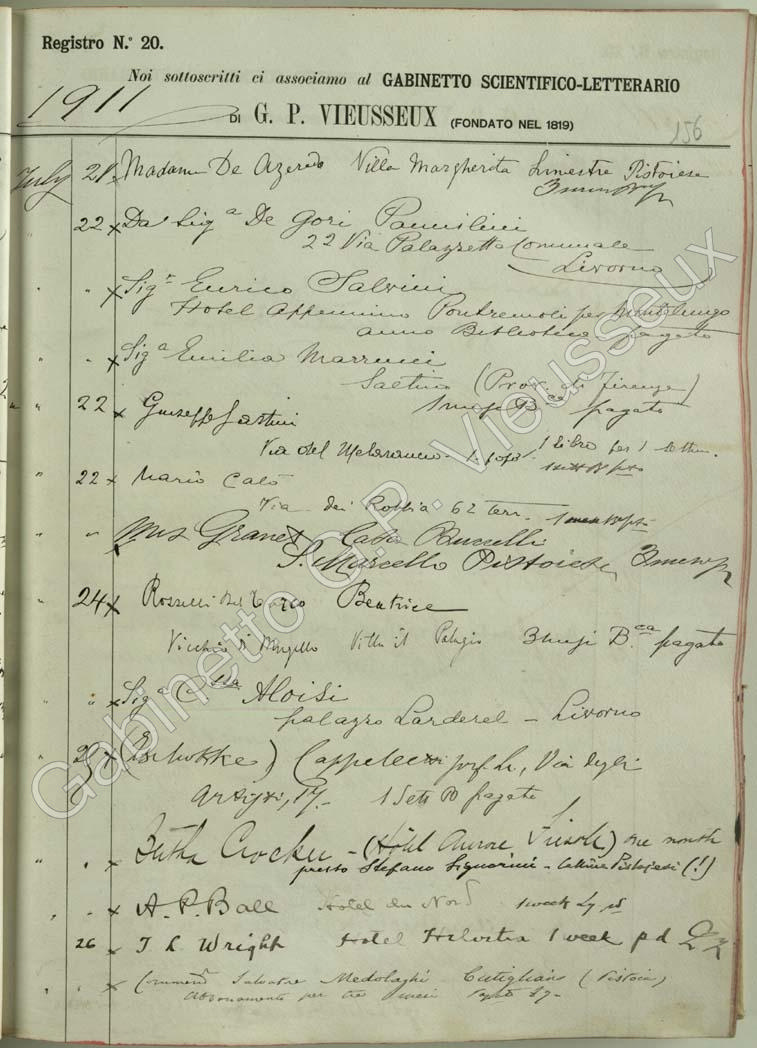 Registro N.° 20.
Noi sottoscritti ci associamo al GABINETTO SCIENTIFICO-LETTERARIO
1911
DI G. P. VIEUSSEUX (FONDATO NEL 1819)
156
July 21 Madame De Azeredo Villa Margherita Pistoiese
3 mesi
22 x Da Sigª De Gori Pannilini
22 Via Palazzetto Comunale
Livorno
" " x Sigr Enrico Salvini
Hotel Appennino Pontremoli per
anno Biblioteca pagato
" " x Sigª Emilia Marrucci
Saltino (Prov. di Firenze)
1 mese Bca pagato
22 x Giuseppe Sartini
Via del Melarancio 1 libro per 1
22 x Mario Calò
Via dei Robbia 62 terr.
" " x Miss Graves Casa Buccelli
S. Marcello Pistoiese 3 mesi
24 x Rosselli Del Turco Beatrice
Vicchio di Mugello Villa il Palagio 3 mesi B.ca pagato
" " x Sigª Aloisi
palazzo Larderel - Livorno
25 x (Tschokke) Cappelletti Via degli
Artisti, 17. 1 Sett B pagato
" " x Crocker - (Hôtel Aurore Fiesole) one month
presso Stefano Signorini - (!)
" " x A. P. Ball Hotel du Nord 1 week
26 x J L Wright Hotel Helvetia 1 week pd
" x Commend Salvatore Medolaghi Cutigliano (Pistoia)
Abbonamento per tre mesi
Gabinetto G.P. Vieusseux